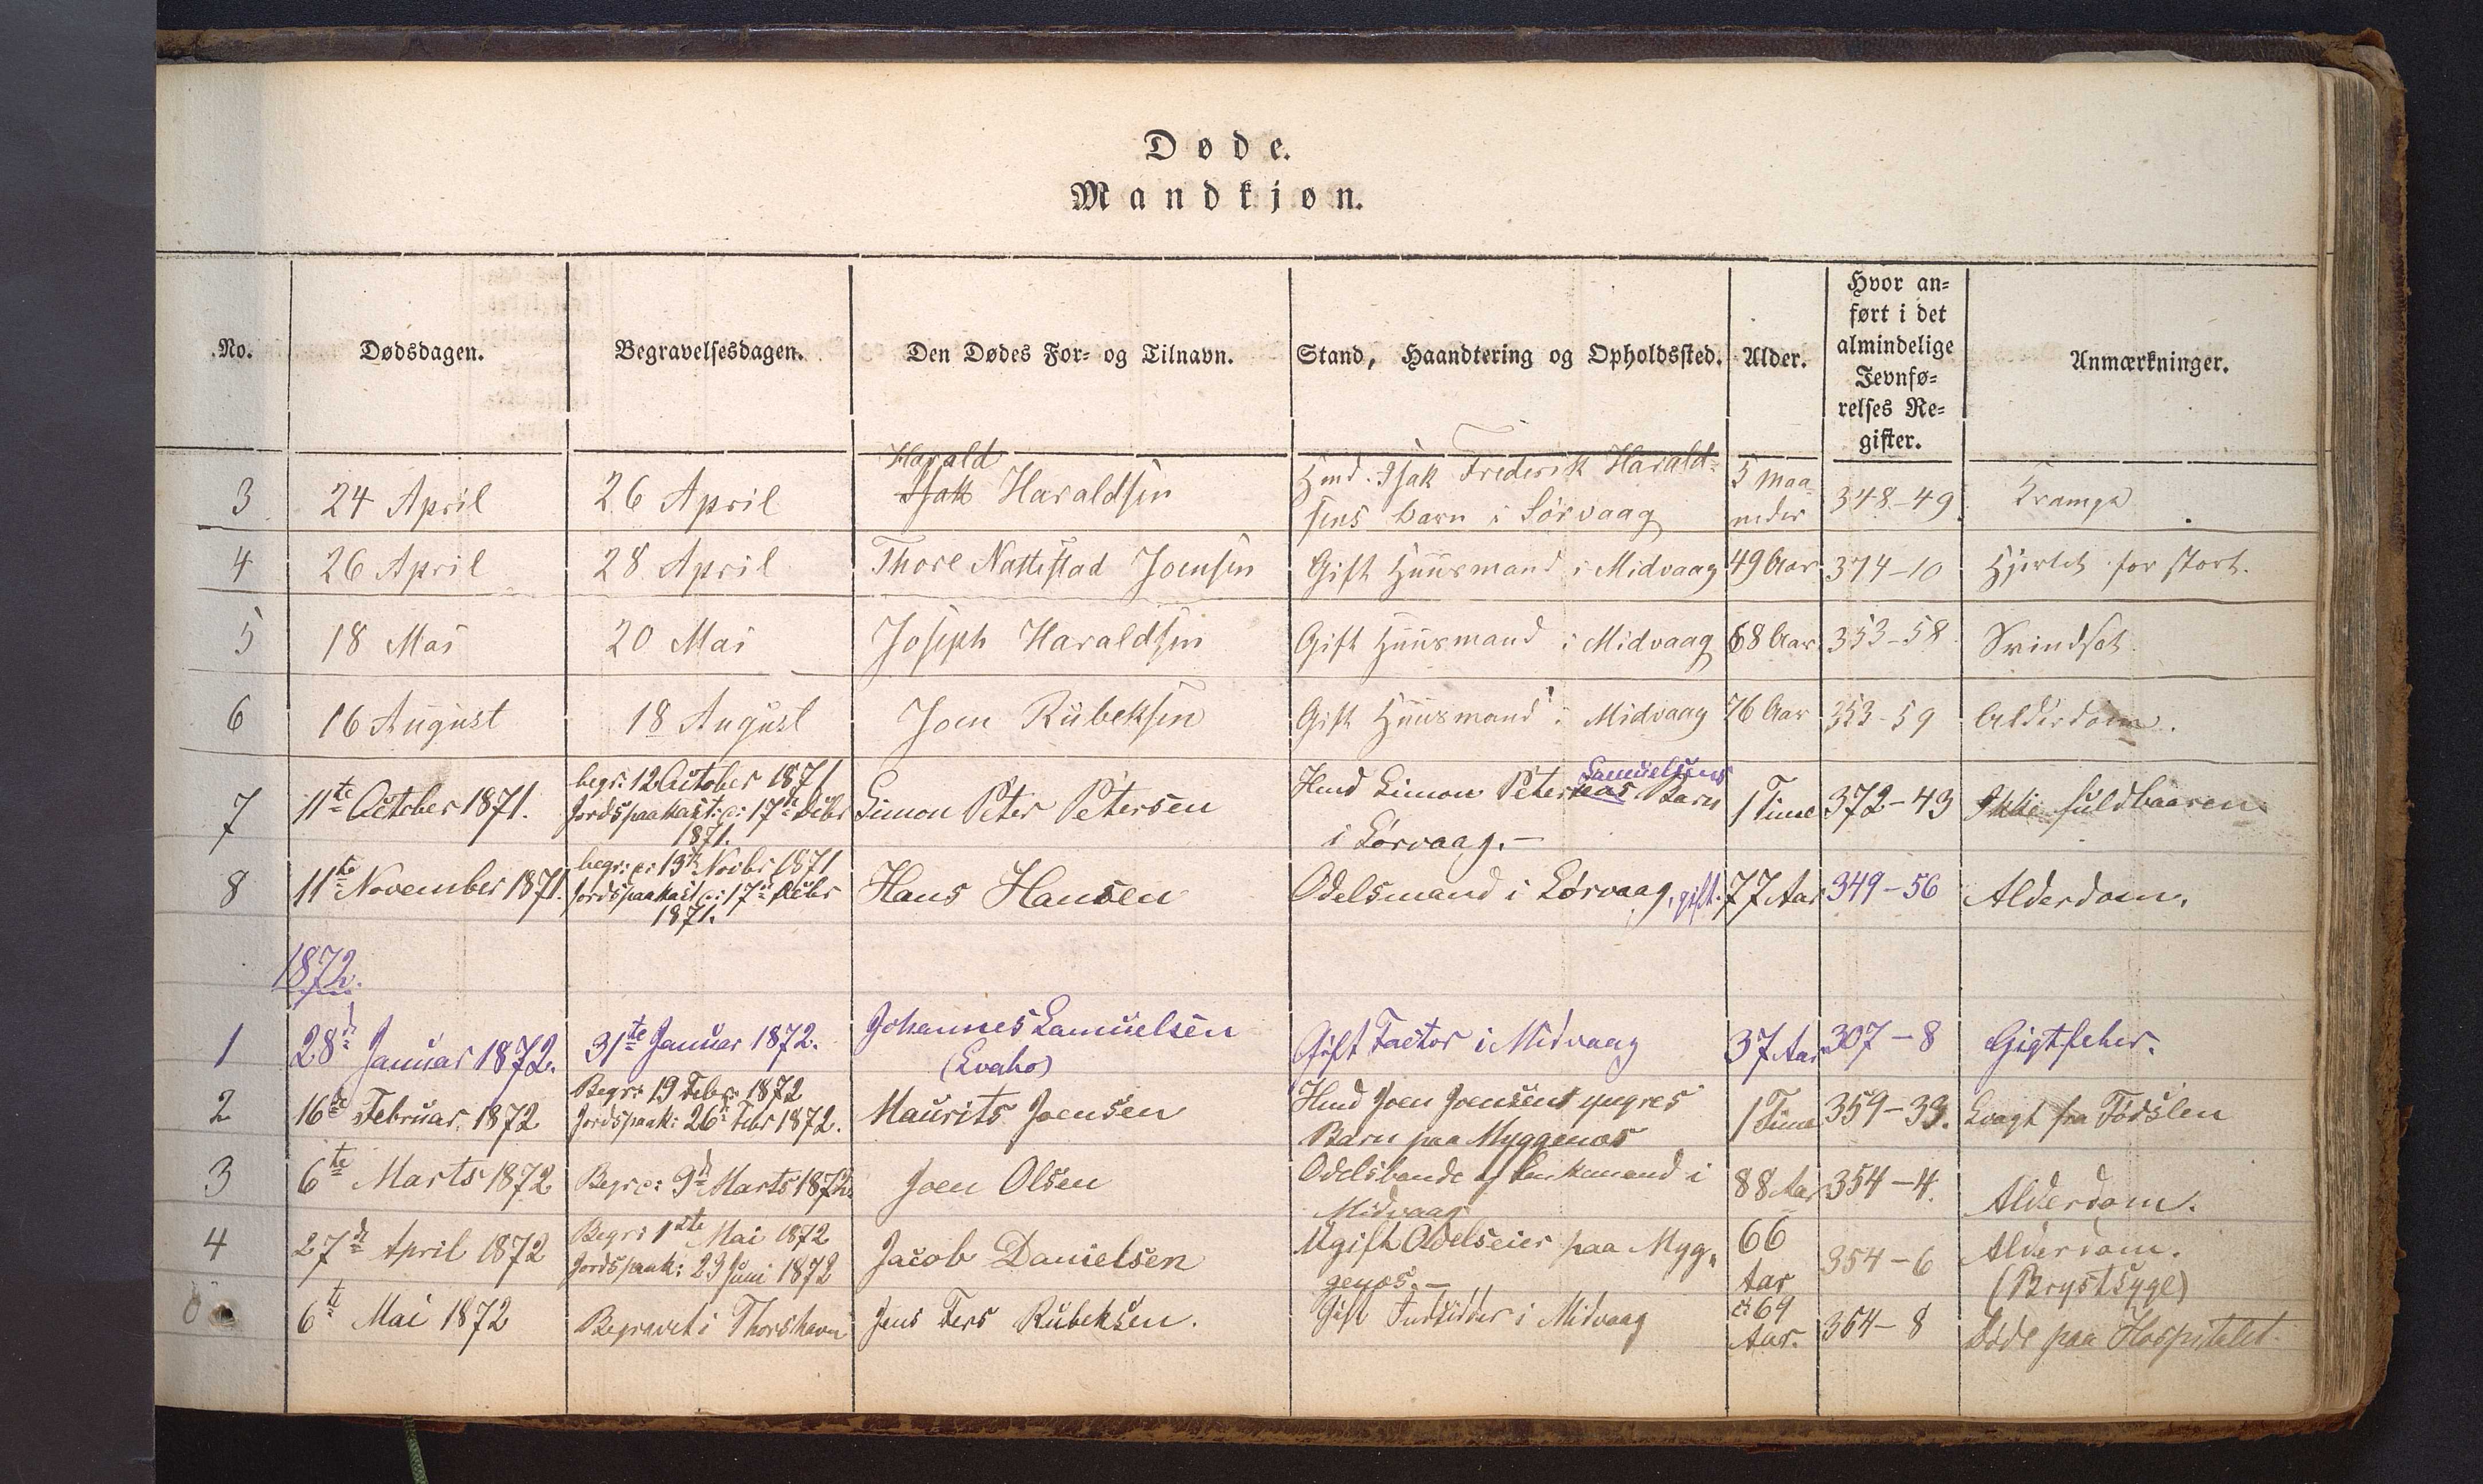 Døde.
Mandkjøn.
No. Dødsdagen. Begravelsesdagen. Den Dødes For- og Tilnavn. Stand, Haandtering og Opholdssted. Alder. Hvor an-
ført i det
almindelige
Jevnfø-
relses Re-
gister. Anmærkninger.
Harald
3 24 April 26 April Isak Haraldsen Hmd. Isak Frederik Harald- 5 Maa-
sens barn i Sørvaag neder 348-49 Krampe
4 26 April 28 April Thore Nattestad Joensen Gift Huusmand i Midvaag 49 Aar 374-10 Hjertet for stort.
5 18 Mai 20 Mai Joseph Haraldsen Gift Huusmand i Midvaag 68 Aar 353-58 Svindsot
6 16 August 18 August Joen Rubeksen Gift Huusmand i Midvaag 76 Aar 353-59 Alderdom.
7 11te October 1871. begr: 12 October 1871
Jordspaakast: 17de Decbr
1871. Simon Peter Petersen Hmd Simon Peter Samuelsens Barn
i Sørvaag.- 1 Time 372-43 Ikke fuldbaaren
8 11te November 1871. begr: 13de Novbr 1871
Jordspaakast 17de Decbr
1871. Hans Hansen Odelsmand i Sørvaag, gift. 77 Aar 349-56 Alderdom.
1872.
1 28de Januar 1872. 31te Januar 1872. Johannes Samuelsen
(Qvaho) Gift Factor i Midvaag 37 Aar 307-8 Gigtfeber.
2 16de Februar 1872 Begr: 19 Febr: 1872
Jordspaak: 26de Febr 1872. Maurits Joensen Hmd Joen Joensens yngres
Barn paa Myggenæs 1 Time 359-33. Svagt fra Fødslen
3 6te Marts 1872 Begr: 9de Marts 1872 Joen Olsen Odelsbonde og Enkemand i
Midvaag 88 Aar 354-4. Alderdom.
4 27de April 1872 Begr: 1ste Mai 1872
Jordspaak: 23 Juni 1872 Jacob Danielsen Ugift Odelseier paa Myg-
genæs.- 66
Aar 354-6 Alderdom.
(Brystsyge)
6te Mai 1872 Begravet i Thorshavn Jens Ters Rubeksen. Gift Indsidder i Midvaag 69
Aar. 364-8 Døde paa Hospitalet